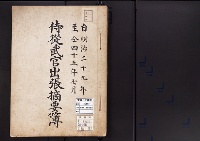 自明治二十九年
至仝四十五年七月
侍従武官出張摘要簿